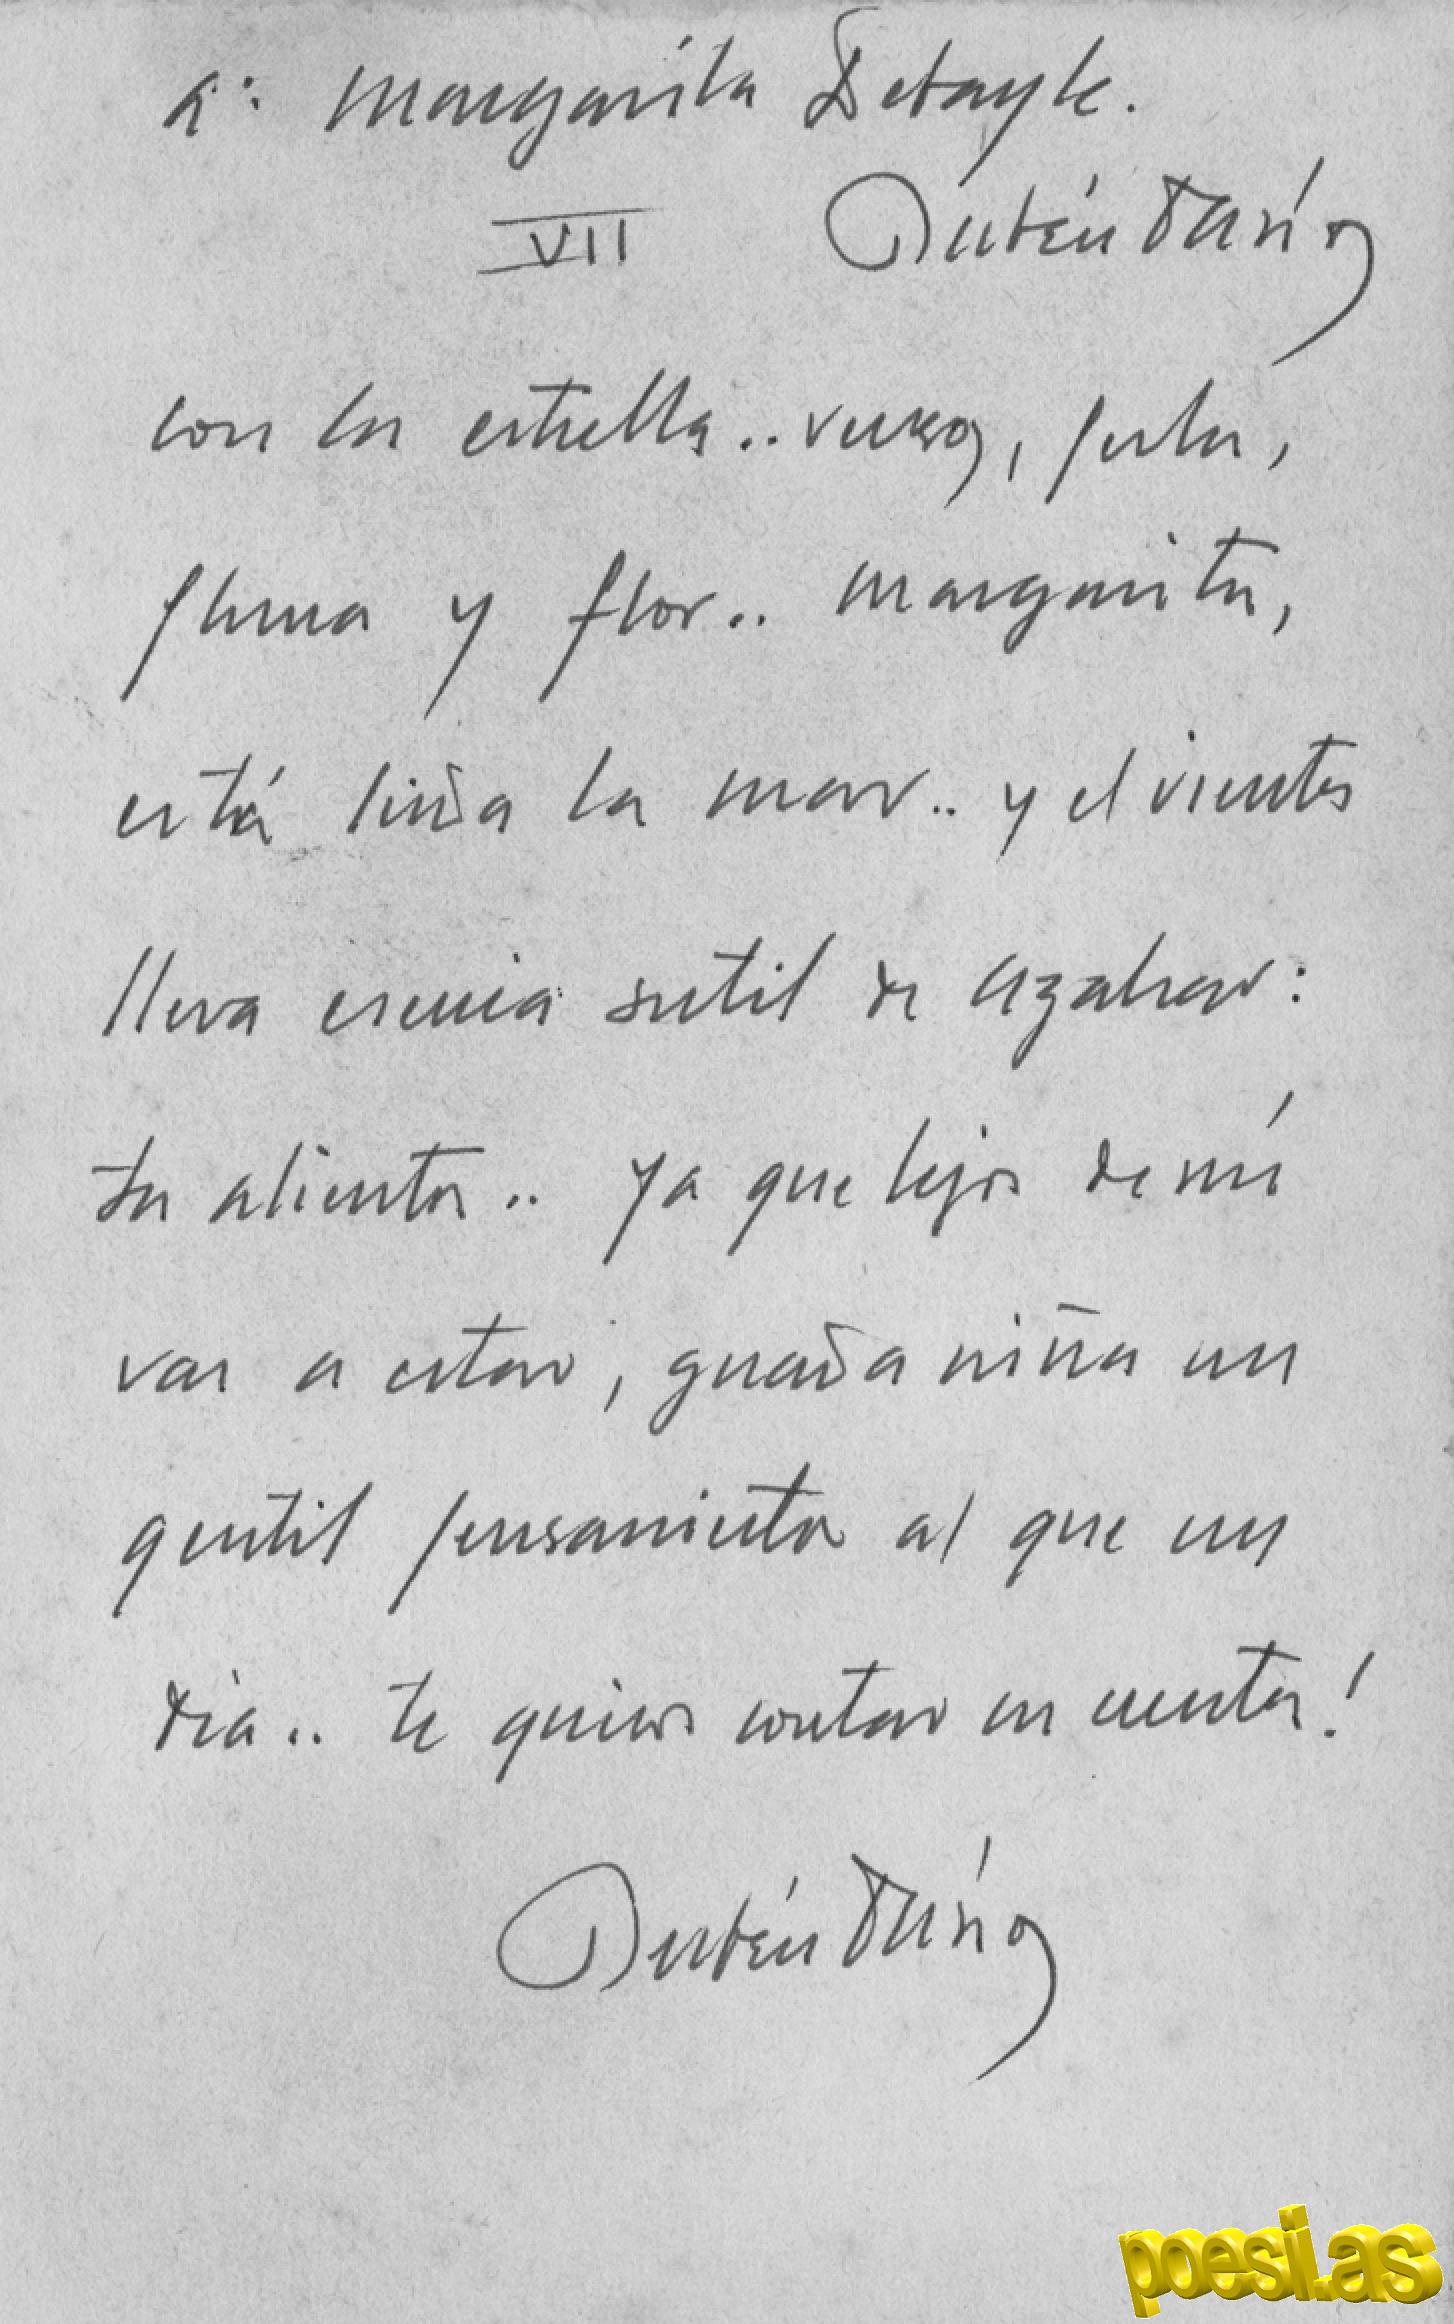 a: Margarita Debayle.
VII Rubén Darío
con la estrella.. verso, perla,
pluma y flor.. margarita,
está linda la mar.. y el viento
lleva esencia sutil de azahar:
tu aliento.. ya que lejos de mí
vas a estar, guarda niña un
gentil pensamiento al que un
día.. te quiso contar un cuento!
Rubén Darío
poesi.as